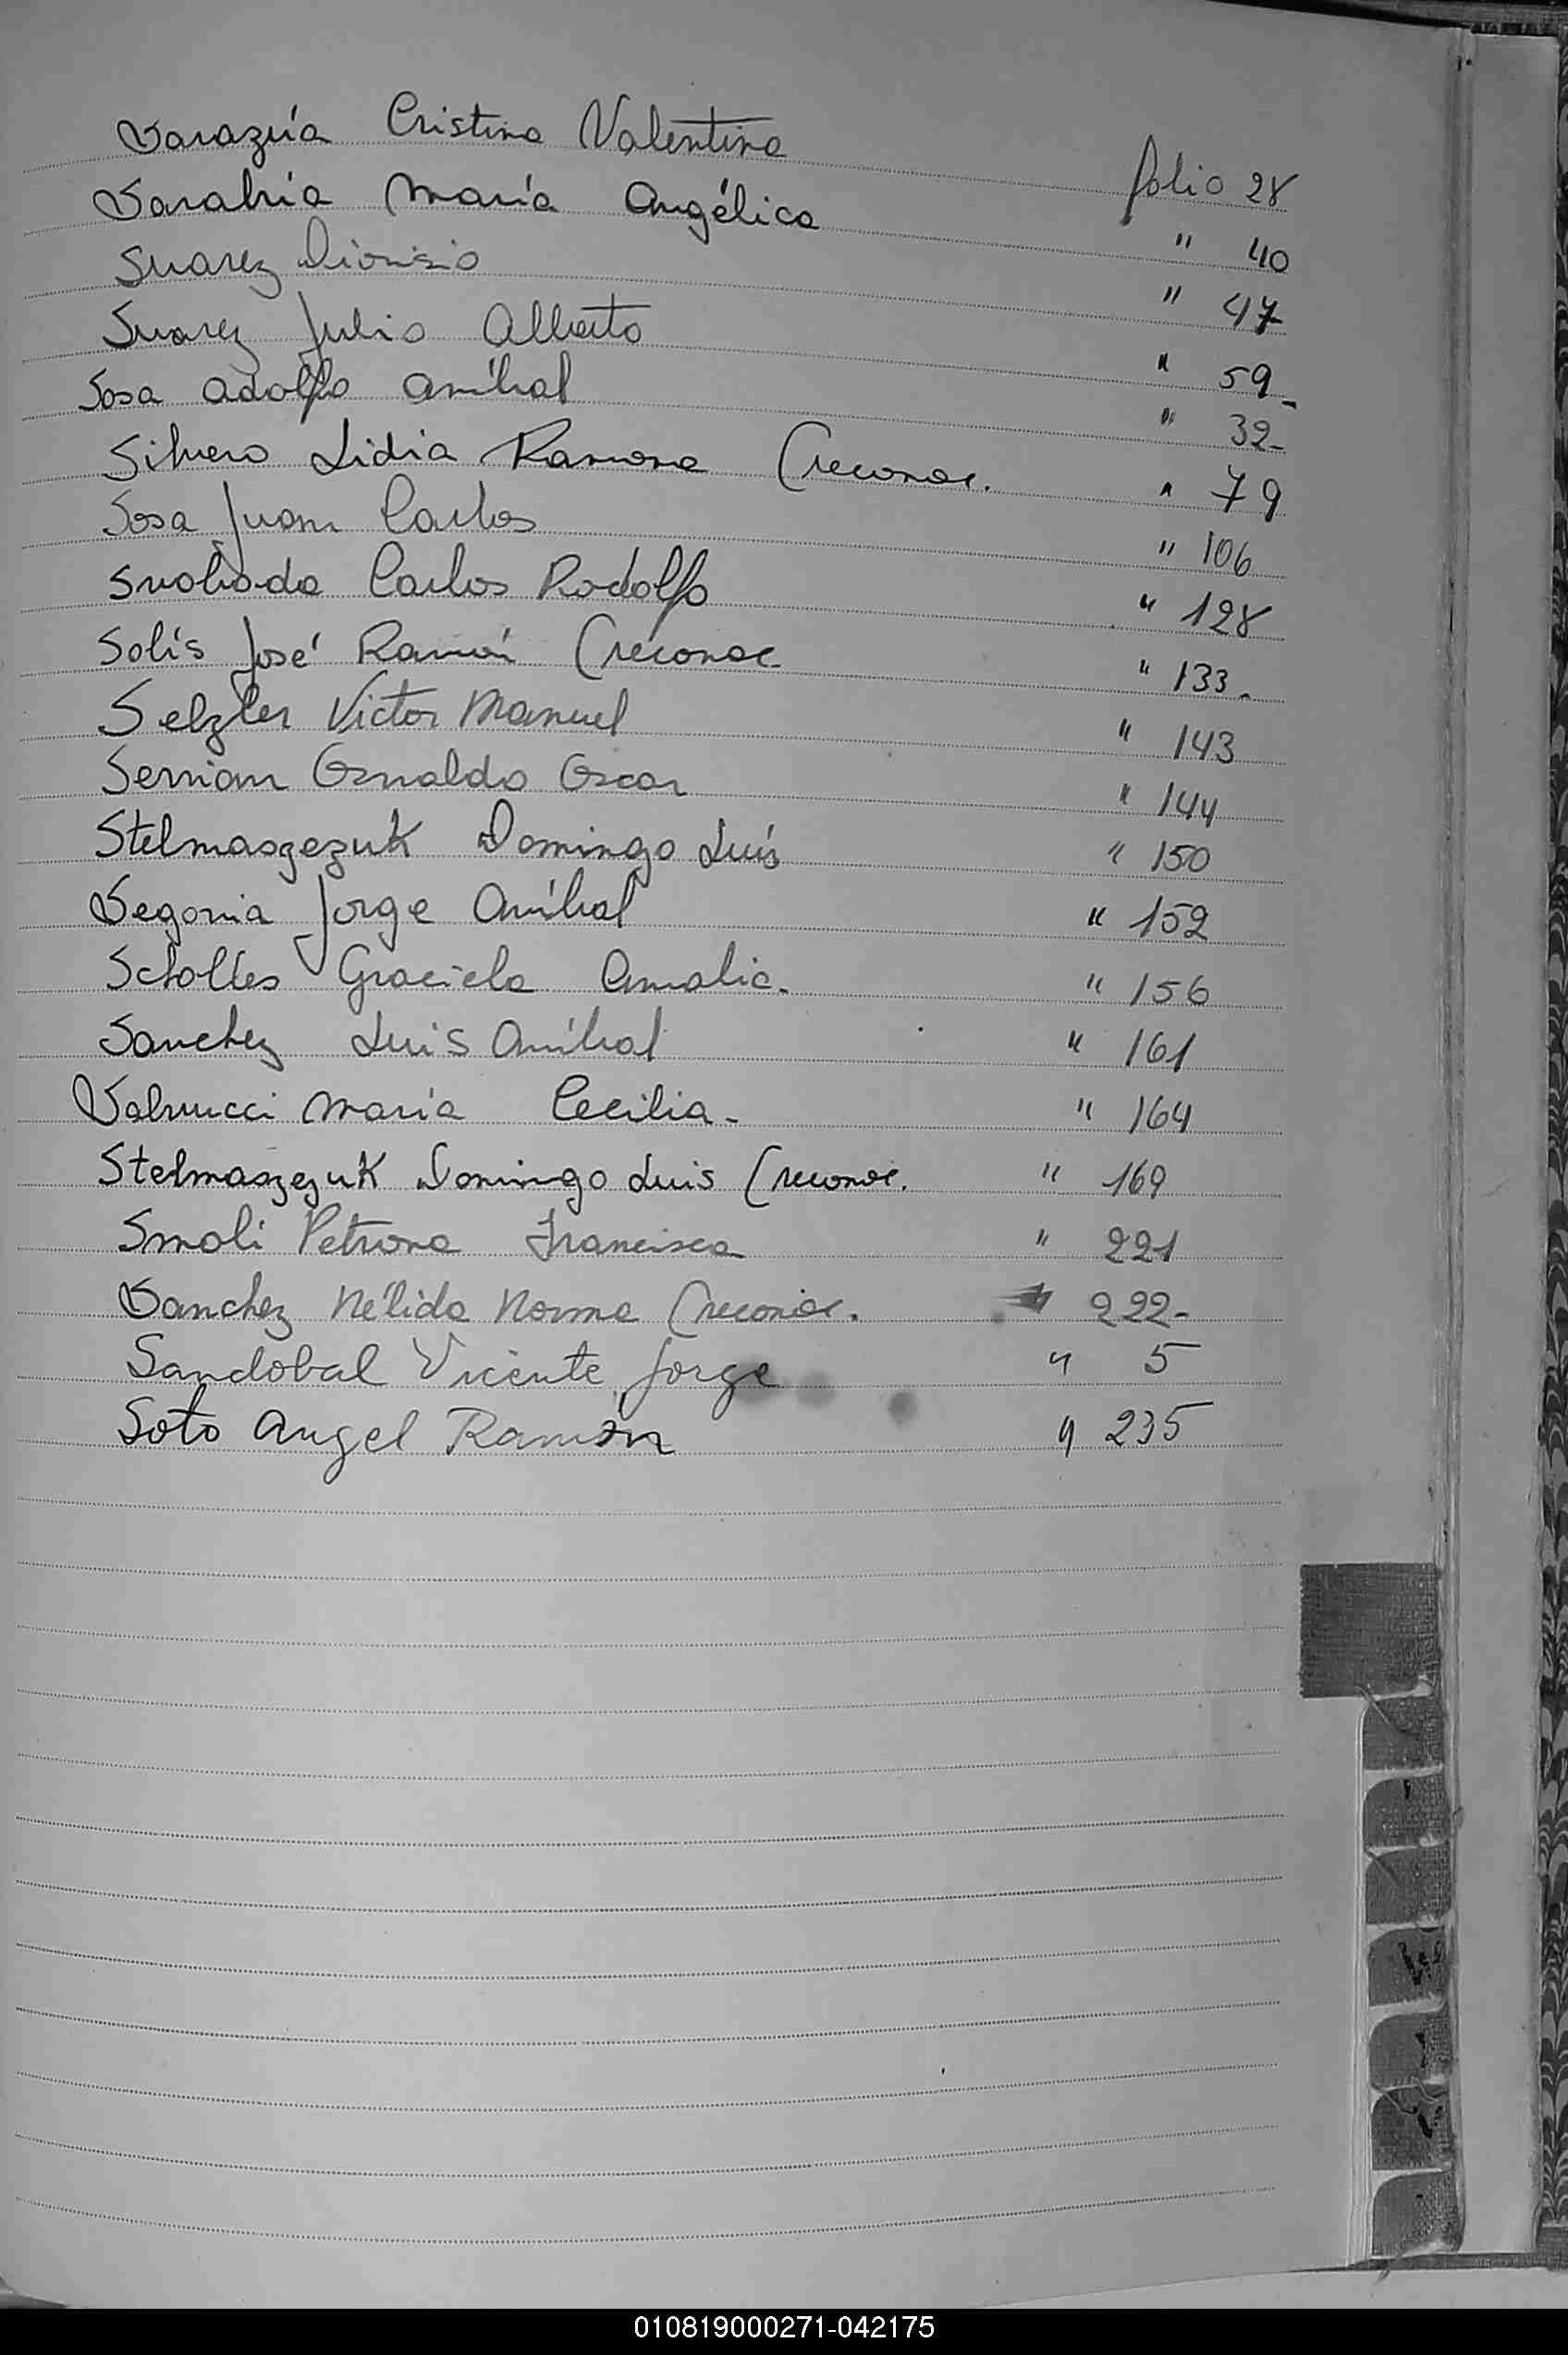 Sarazúa Cristina Valentina folio 28
Sarabria María Angélica " 40
Suarez Dionisio " 47
Suarez Julio Alberto " 59
Sosa Adolfo Aníbal " 32
Silvero Lidia Ramona (reconoc. " 79
Sosa Juan Carlos " 106
Svoboda Carlos Rodolfo " 128
Solís José Ramón (reconoc " 133
Selzler Victor Manuel " 143
Servian Osvaldo Oscar " 144
Stelmaszezuk Domingo Luís " 150
Segovia Jorge Aníbal " 152
Scholles Graciela Amalia. " 156
Sanchez Luis Aníbal " 161
Salvucci María Cecilia - " 164
Stelmaszezuk Domingo Luis (reconoc. " 169
Smoli Petrona Francisca " 221
Sanchez Nélida Norma (reconoc. " 222-
Sandobal Vicente Jorge " 5
Soto Angel Ramón " 235
010819000271-042175